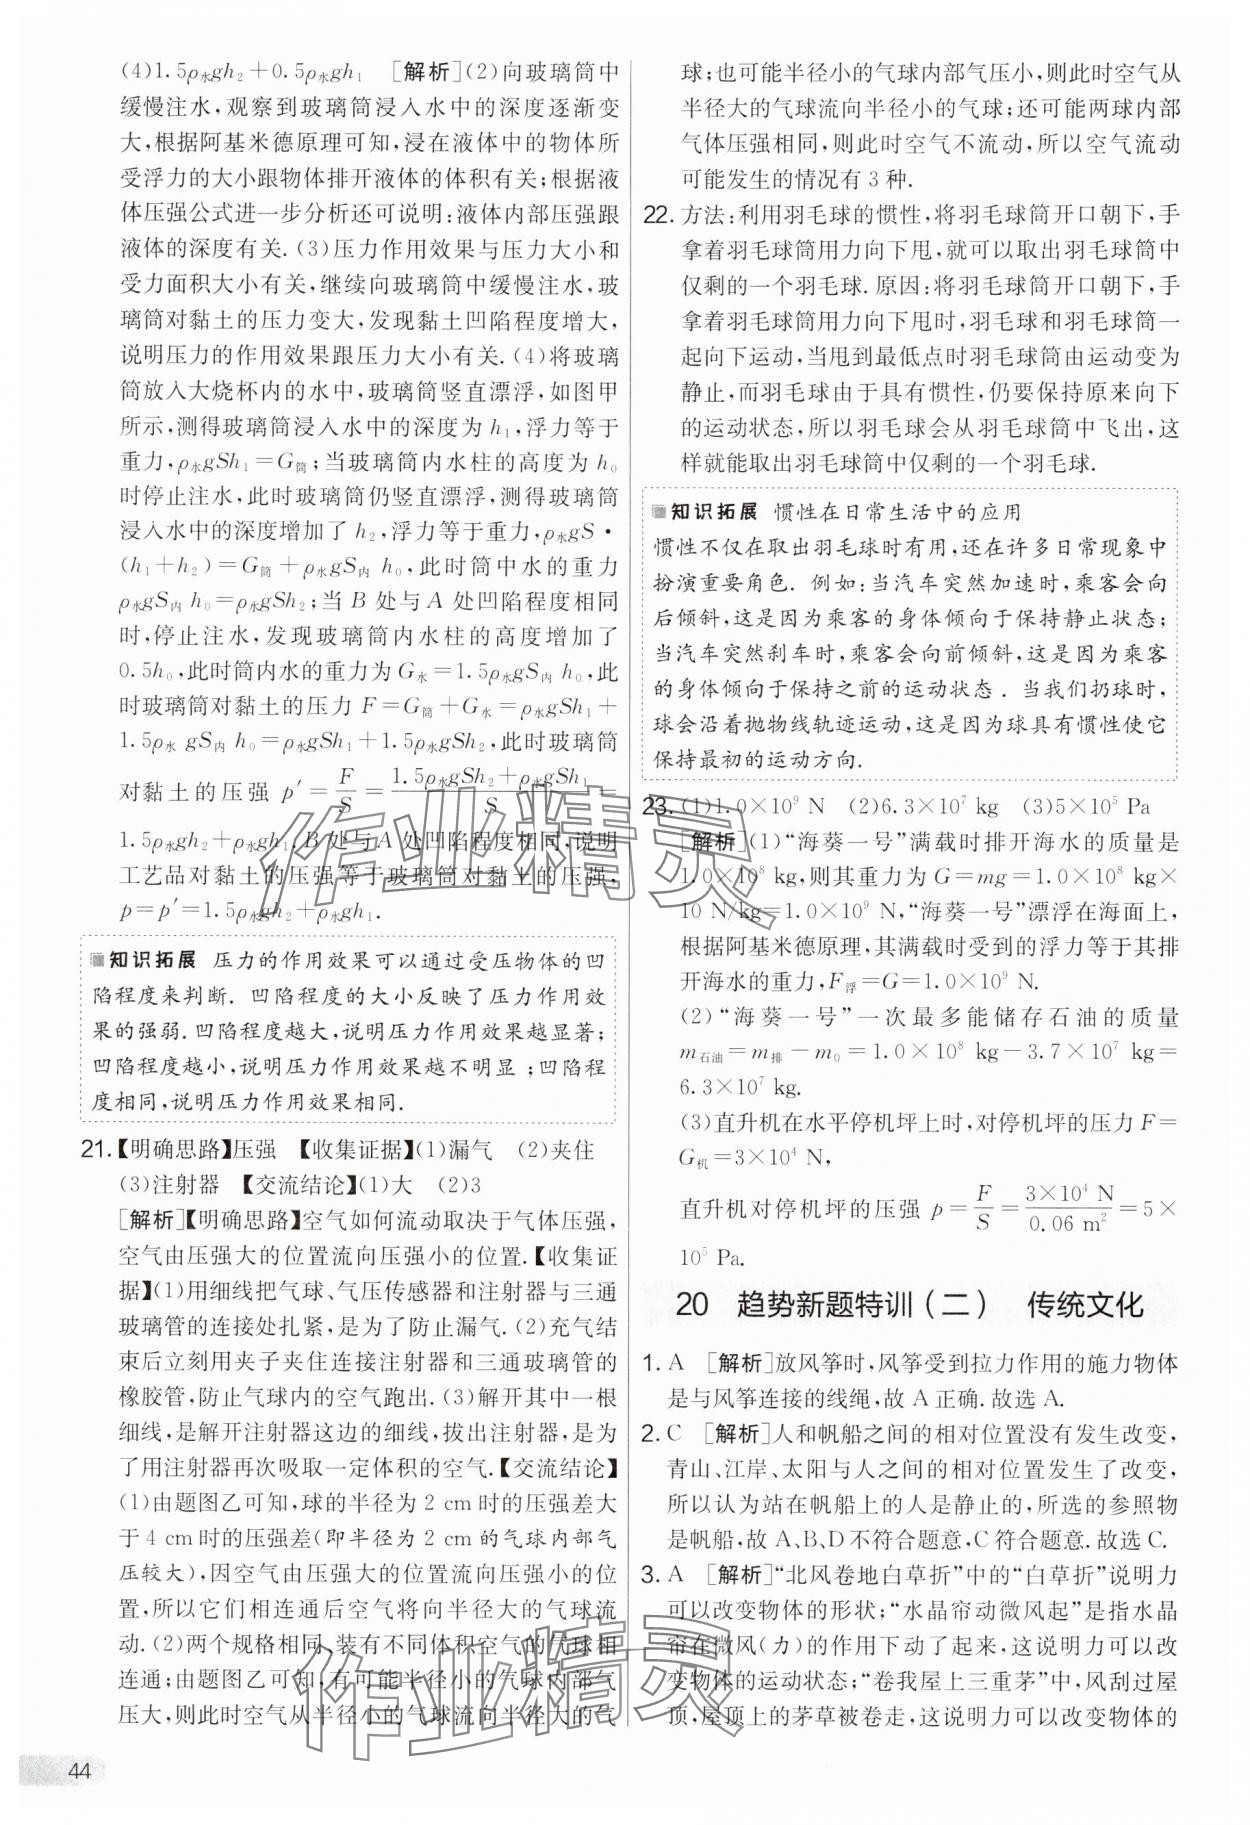 (4)1.5ρ水gh₂＋0.5ρ水gh₁　[解析](2)向玻璃筒中
缓慢注水,观察到玻璃筒浸入水中的深度逐渐变
大,根据阿基米德原理可知,浸在液体中的物体所
受浮力的大小跟物体排开液体的体积有关;根据液
体压强公式进一步分析还可说明:液体内部压强跟
液体的深度有关.(3)压力作用效果与压力大小和
受力面积大小有关,继续向玻璃筒中缓慢注水,玻
璃筒对黏土的压力变大,发现黏土凹陷程度增大,
说明压力的作用效果跟压力大小有关.(4)将玻璃
筒放入大烧杯内的水中,玻璃筒竖直漂浮,如图甲
所示,测得玻璃筒浸入水中的深度为h₁,浮力等于
重力,ρ水gSh₁＝G筒;当玻璃筒内水柱的高度为h₀
时停止注水,此时玻璃筒仍竖直漂浮,测得玻璃筒
浸入水中的深度增加了h₂,浮力等于重力,ρ水gS·
(h₁＋h₂)＝G筒＋ρ水gS内 h₀,此时筒中水的重力
ρ水gS内 h₀＝ρ水gSh₂;当B处与A处凹陷程度相同
时,停止注水,发现玻璃筒内水柱的高度增加了
0.5h₀,此时筒内水的重力为G水＝1.5ρ水gS内 h₀,此
时玻璃筒对黏土的压力F＝G筒＋G水＝ρ水gSh₁＋
1.5ρ水 gS内 h₀＝ρ水gSh₁＋1.5ρ水gSh₂,此时玻璃筒
对黏土的压强 p′＝F/S＝(1.5ρ水gSh₂＋ρ水gSh₁)/S＝
1.5ρ水gh₂＋ρ水gh₁,B处与A处凹陷程度相同,说明
工艺品对黏土的压强等于玻璃筒对黏土的压强,
p＝p′＝1.5ρ水gh₂＋ρ水gh₁.
知识拓展　压力的作用效果可以通过受压物体的凹
陷程度来判断. 凹陷程度的大小反映了压力作用效
果的强弱.凹陷程度越大,说明压力作用效果越显著;
凹陷程度越小,说明压力作用效果越不明显;凹陷程
度相同,说明压力作用效果相同.
21.【明确思路】压强　【收集证据】(1)漏气　(2)夹住
(3)注射器　【交流结论】(1)大　(2)3
[解析]【明确思路】空气如何流动取决于气体压强,
空气由压强大的位置流向压强小的位置.【收集证
据】(1)用细线把气球、气压传感器和注射器与三通
玻璃管的连接处扎紧,是为了防止漏气.(2)充气结
束后立刻用夹子夹住连接注射器和三通玻璃管的
橡胶管,防止气球内的空气跑出.(3)解开其中一根
细线,是解开注射器这边的细线,拔出注射器,是为
了用注射器再次吸取一定体积的空气.【交流结论】
(1)由题图乙可知,球的半径为2 cm时的压强差大
于4 cm时的压强差(即半径为2 cm的气球内部气
压较大),因空气由压强大的位置流向压强小的位
置,所以它们相连通后空气将向半径大的气球流
动.(2)两个规格相同、装有不同体积空气的气球相
连通;由题图乙可知,有可能半径小的气球内部气
压大,则此时空气从半径小的气球流向半径大的气
球;也可能半径小的气球内部气压小,则此时空气从
半径大的气球流向半径小的气球;还可能两球内部
气体压强相同,则此时空气不流动,所以空气流动
可能发生的情况有3种.
22. 方法:利用羽毛球的惯性,将羽毛球筒开口朝下,手
拿着羽毛球筒用力向下甩,就可以取出羽毛球筒中
仅剩的一个羽毛球.原因:将羽毛球筒开口朝下,手
拿着羽毛球筒用力向下甩时,羽毛球和羽毛球筒一
起向下运动,当甩到最低点时羽毛球筒由运动变为
静止,而羽毛球由于具有惯性,仍要保持原来向下
的运动状态,所以羽毛球会从羽毛球筒中飞出,这
样就能取出羽毛球筒中仅剩的一个羽毛球.
知识拓展　惯性在日常生活中的应用
惯性不仅在取出羽毛球时有用,还在许多日常现象中
扮演重要角色. 例如:当汽车突然加速时,乘客会向
后倾斜,这是因为乘客的身体倾向于保持静止状态;
当汽车突然刹车时,乘客会向前倾斜,这是因为乘客
的身体倾向于保持之前的运动状态. 当我们扔球时,
球会沿着抛物线轨迹运动,这是因为球具有惯性使它
保持最初的运动方向.
23. (1)1.0×10⁹ N　(2)6.3×10⁷ kg　(3)5×10⁵ Pa
[解析](1)“海葵一号”满载时排开海水的质量是
1.0×10⁸ kg,则其重力为G＝mg＝1.0×10⁸ kg×
10 N/kg＝1.0×10⁹ N,“海葵一号”漂浮在海面上,
根据阿基米德原理,其满载时受到的浮力等于其排
开海水的重力,F浮＝G＝1.0×10⁹ N.
(2)“海葵一号”一次最多能储存石油的质量
m石油＝m排－m₀＝1.0×10⁸ kg－3.7×10⁷ kg＝
6.3×10⁷ kg.
(3)直升机在水平停机坪上时,对停机坪的压力F＝
G机＝3×10⁴ N,
直升机对停机坪的压强 p＝F/S＝(3×10⁴ N)/(0.06 m²)＝5×
10⁵ Pa.
20　趋势新题特训(二)　传统文化
1. A　[解析]放风筝时,风筝受到拉力作用的施力物体
是与风筝连接的线绳,故A正确.故选A.
2. C　[解析]人和帆船之间的相对位置没有发生改变,
青山、江岸、太阳与人之间的相对位置发生了改变,
所以认为站在帆船上的人是静止的,所选的参照物
是帆船,故A、B、D不符合题意,C符合题意.故选C.
3. A　[解析]“北风卷地白草折”中的“白草折”说明力
可以改变物体的形状;“水晶帘动微风起”是指水晶
帘在微风(力)的作用下动了起来,这说明力可以改
变物体的运动状态;“卷我屋上三重茅”中,风刮过屋
顶,屋顶上的茅草被卷走,这说明力可以改变物体的
44
作业精灵
作业精灵